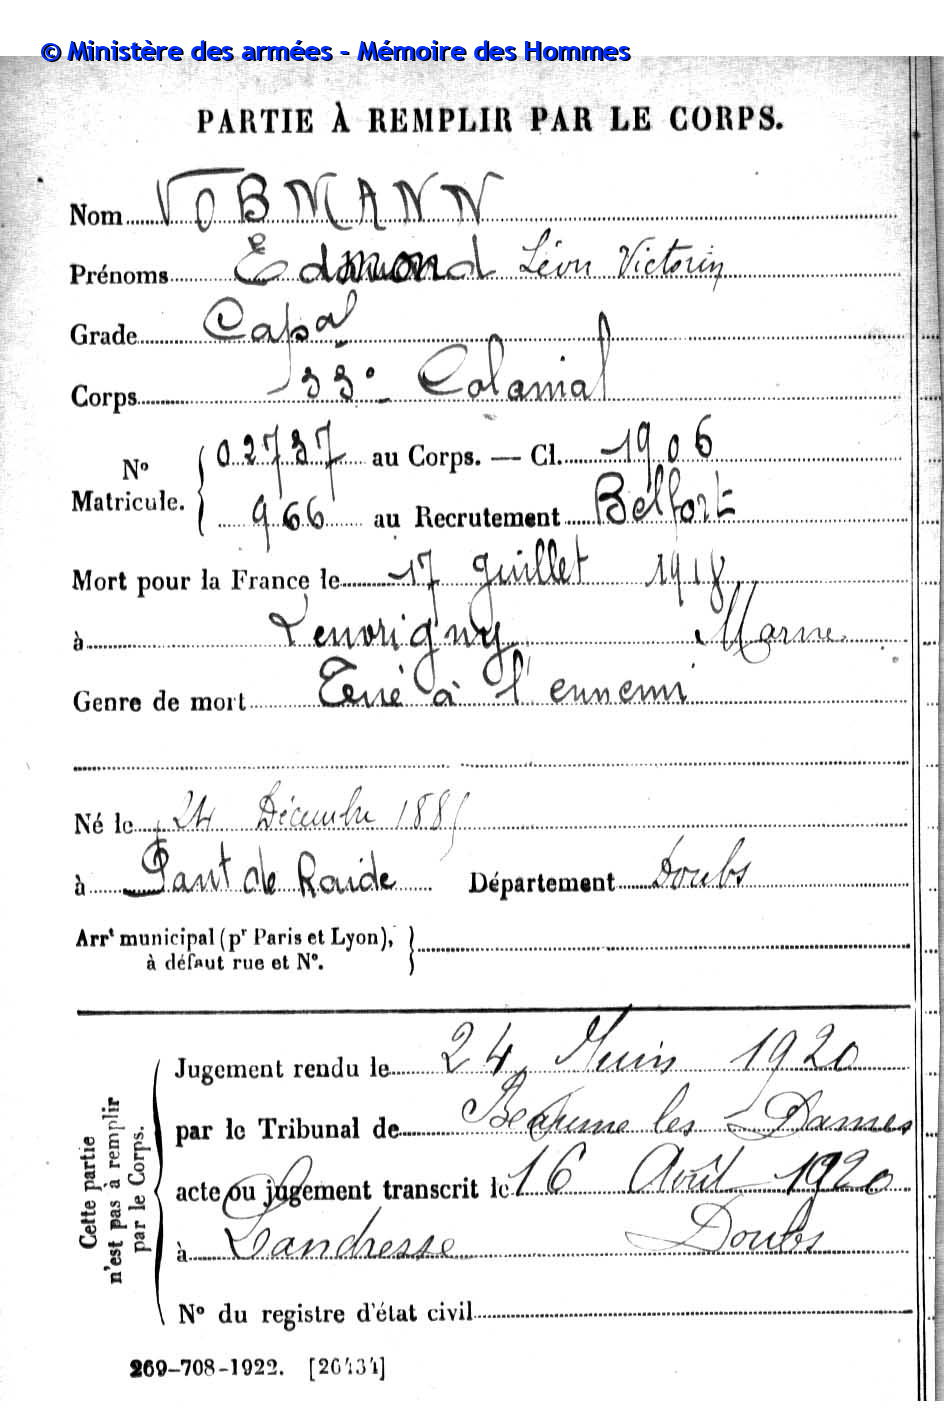 © Ministère des armées - Mémoire des Hommes
PARTIE À REMPLIR PAR LE CORPS.
Nom VOBMANN
Prénoms Edmond Léon Victorin
Grade Capal
Corps 33e Colonial
No Matricule. { 02737 au Corps. — Cl. 1906
966 au Recrutement Belfort
Mort pour la France le 17 Juillet 1918
à Leuvrigny Marne
Genre de mort Tué à l'ennemi
Né le 24 Décembre 188
à Pont de Roide Département Doubs
Arrt municipal (pr Paris et Lyon), }
à défaut rue et No.
Cette partie n'est pas à remplir par le Corps.
Jugement rendu le 24 1920
par le Tribunal de Beaume les Dames
acte ou jugement transcrit le 16 Août 1920
à Landresse Doubs
No du registre d'état civil
269-708-1922. [26434]